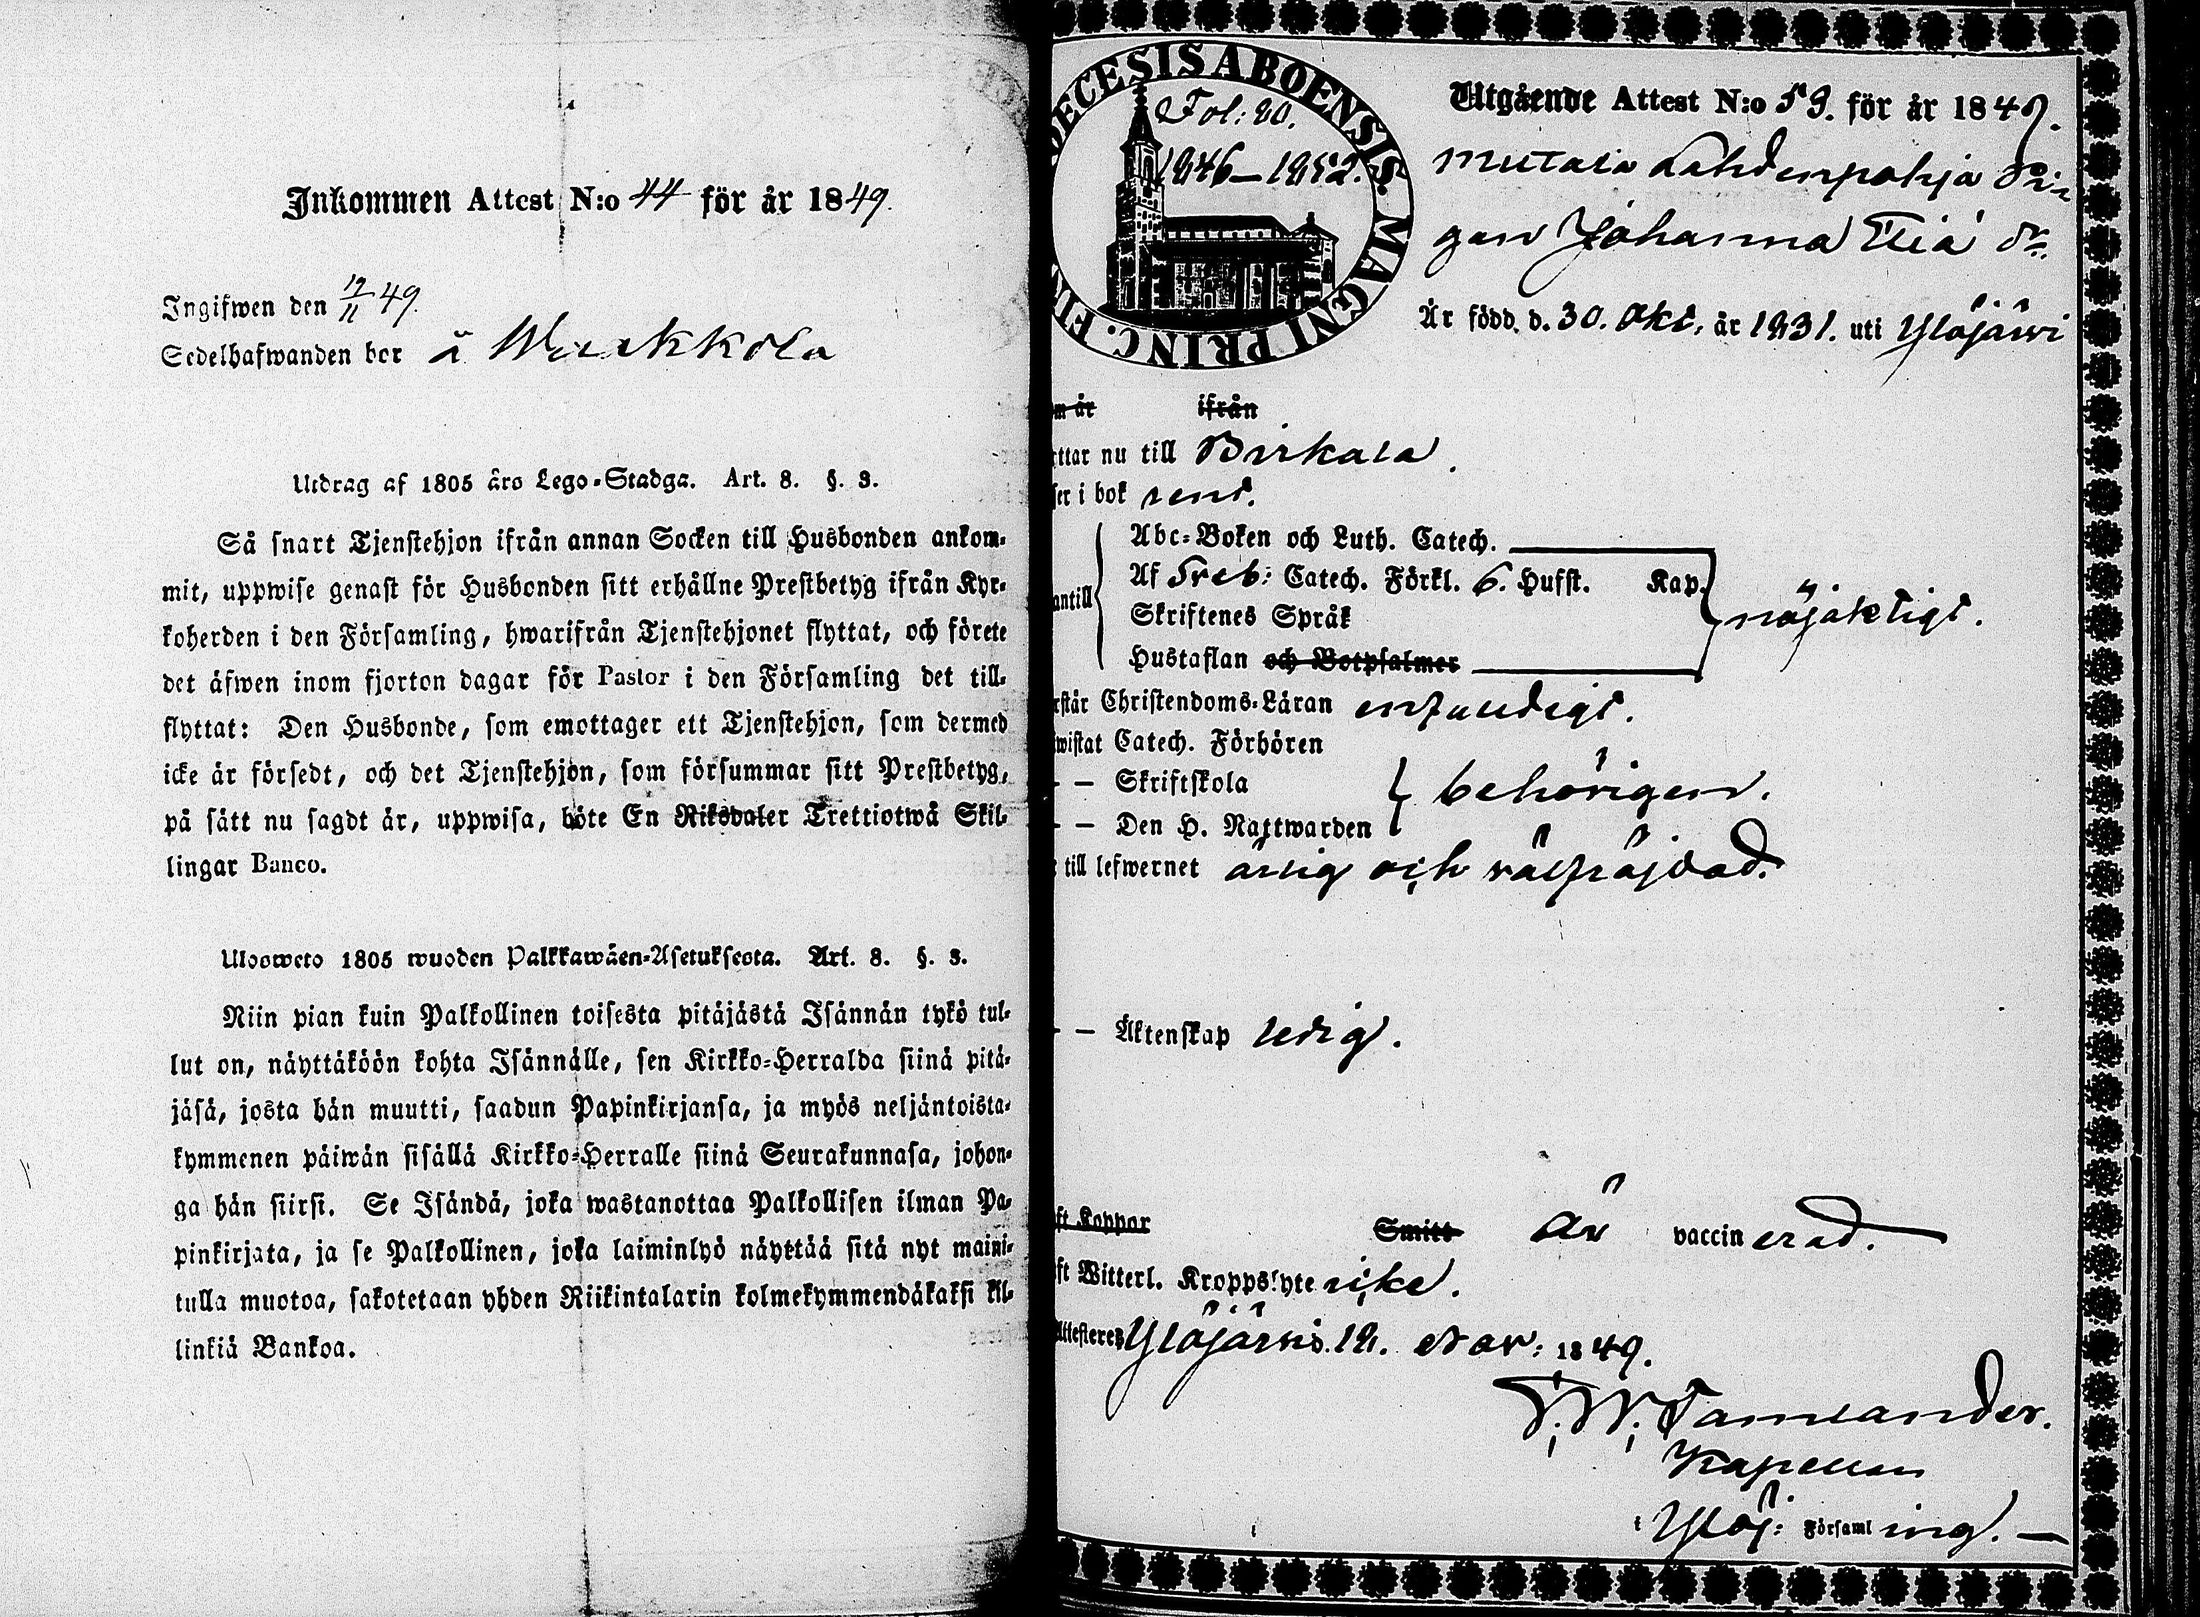 Inkommen Attest N:o 44 för år 1849.
Ingifwen den 19/11 49.
Sedelhafwanden bor å
Utdrag af 1805 års Lego-Stadga. Art. 8. §. 3.
Så snart Tjenstehjon ifrån annan Socken till Husbonden ankom-
mit, uppwise genast för Husbonden sitt erhållne Prestbetyg ifrån Kyr-
koherden i den Församling, hwarifrån Tjenstehjonet flyttat, och förete
det äfwen inom fjorton dagar för Pastor i den Församling det till-
flyttat: Den Husbonde, som emottager ett Tjenstehjon, som dermed
icke är försedt, och det Tjenstehjon, som försummar sitt Prestbetyg,
på sätt nu sagdt är, uppwisa, böte En Riksdaler Trettiotwå Skil-
lingar Banco.
Ulosweto 1805 wuoden Palkkawäen-Asetuksesta. Art. 8. §. 3.
Niin pian kuin Palkollinen toisesta pitäjästä Isännän tykö tul-
lut on, näyttäköön kohta Isännälle, sen Kirkko-Herralda siinä pitä-
jäsä, josta hän muutti, saadun Papinkirjansa, ja myös neljäntoista-
kymmenen päiwän sisällä Kirkko-Herralle siinä Seurakunnasa, johon-
ga hän siirsi. Se Isändä, joka wastanottaa Palkollisen ilman Pa-
pinkirjata, ja se Palkollinen, joka laiminlyö näyttää sitä nyt maini-
tulla muotoa, sakotetaan yhden Riikintalarin kolmekymmendäkaksi kil-
linkiä Bankoa.
ECESIS ABOENSIS. MAGNI PRINC. FIN
Fol: 80.
1846-1852.
Utgående Attest N:o 59. för år 1849.
Lahdenpohja Pi-
gan Johanna
Är född. d. 30. Okt. år 1831. uti Ylöjärwi
m år ifrån
ttar nu till Birkala.
ser i bok rent.
antill
Abc-Boken och Luth. Catech.
Af Sveb: Catech. Förkl. 6. Hufst. Kap.
Skriftenes Språk
Hustaflan och Botpsalmer
nöjaktigt.
rstår Christendoms-Läran enfaldigt.
wistat Catech. Förhören
- - Skriftskola
- - Den H. Nattwarden
behörigen.
till lefwernet ärlig och välfräjdad.
- - Äktenskap ledig.
ft Koppor Smitt är vaccinerad.
ft Witterl. Kroppslyte icke.
Attesteres Ylöjärvi. 19. Nov: 1849.
Tamlander.
Kapellan
i Ylöj: Församling.